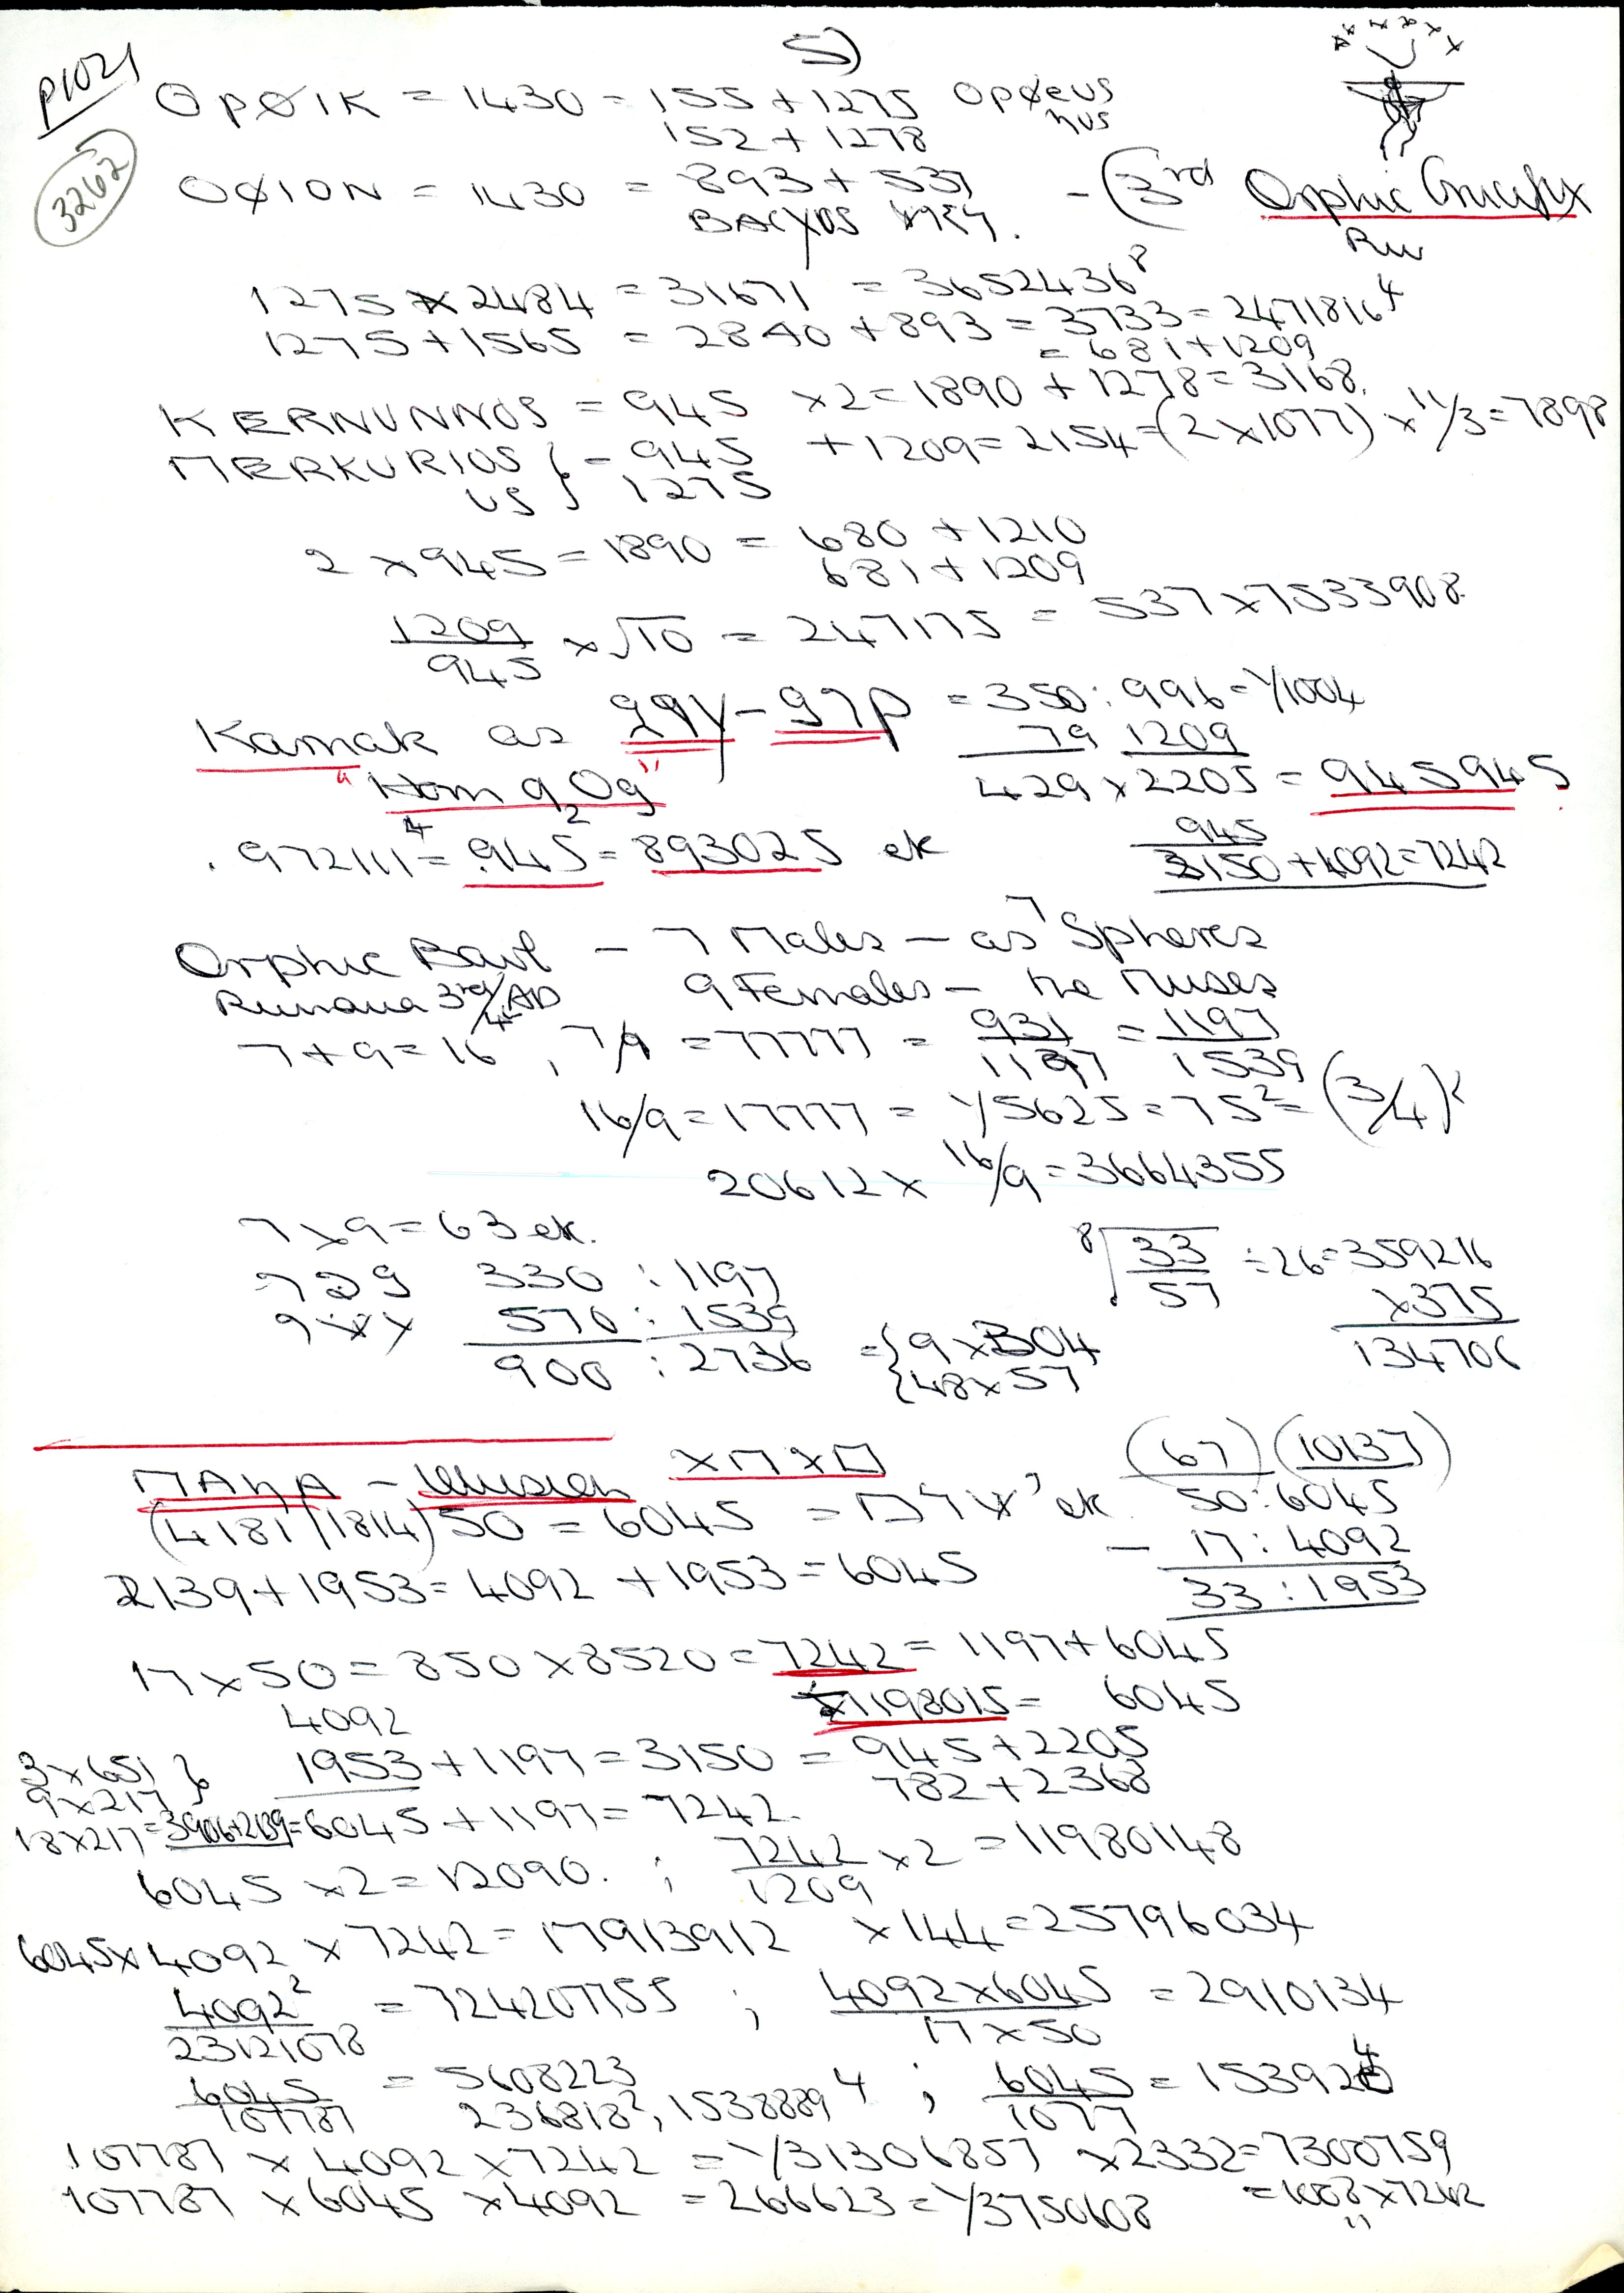 5)
P1021
3262
OPØIK = 1430 = 155 + 1275 OPØEUS
152 + 1278 NUS
OØION = 1430 = 893 + 537 - (3rd Orphic Crucifix
BACXUS
1275 x 2484 = 31671 = 3652436⁸
1275 + 1565 = 2840 + 893 = 3733 = 2471816⁴
= 681 + 1209
KERNUNNOS = 945 x 2 = 1890 + 1278 = 3168.
MERKURIOS } = 945 + 1209 = 2154 = (2 x 1077) x 11/3 = 7898
US } 1275
2 x 945 = 1890 = 680 + 1210
681 + 1209
1209/945 x √10 = 247175 = 537 x 7533908
Karnak as = 350 : 996 = 1/1004
79 1209
"Horn g Og" 429 x 2205 = 945945
.972111⁴ = .945² = 893025 etc
945
3150 + 4092 = 7242
Orphic Bowl - 7 Males - as 7 Spheres
Rumania 3rd/4 AD 9 Females - the Muses
7 + 9 = 16, 7/9 = 77777 = 931/1197 = 1197/1539
16/9 = 17777 = 1/5625 = 75² = (3/4)²
20612 x 16/9 = 3664355
7 x 9 = 63 etc.
330 : 1197
570 : 1539
900 : 2736 = { 9 x 304
{ 48 x 57
⁸√33/57 = 26 = 359216
x 375
134706
MAHA -
(4181/1814) 50 = 6045
(67) (10137)
50 : 6045
- 17 : 4092
33 : 1953
2139 + 1953 = 4092 + 1953 = 6045
17 x 50 = 850 x 8520 = 7242 = 1197 + 6045
4092
x1198015 = 6045
3 x 651 } 1953 + 1197 = 3150 = 945 + 2205
9 x 217 } 782 + 2368
18 x 217 = 3906 + 2139 = 6045 + 1197 = 7242.
6045 x 2 = 12090. ; 7242/1209 x 2 = 11980148
6045 x 4092 x 7242 = 17913912 x 144 = 25796034
4092²/23121078 = 724207755 ; 4092 x 6045/17 x 50 = 2910134
6045/107787 = 5608223 ; 6045/1077 = 15392⁴
236818², 1538889⁴
107787 x 4092 x 7242 = 1/31306857 x 2332 = 7300759
107787 x 6045 x 4092 = 266623 = 1/3750608 = 1008 x 7242